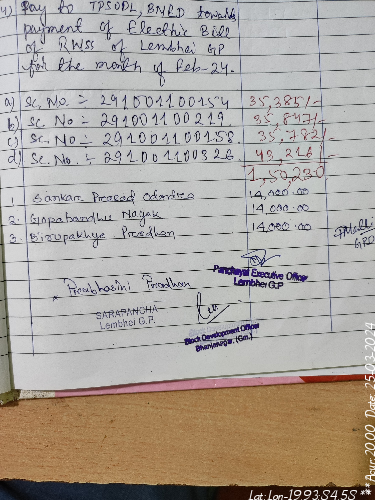 4) Pay to TPSODL, BNRD towards
payment of Electric Bill
of RWSS of Lembhei GP
for the month of Feb-24.
a) Sc. No. = 291001100154 35,385/-
b) Sc. No = 291001100219 35,847/-
c) Sc. No = 291001100158 35,782/-
d) Sc. No. = 291001100326 43,216/-
1,50,230
1. Sankar Prasad 14,000.00
2. Gopabandhu Nayak 14,000.00
3. Birupakhya Pradhan 14,000.00
GPDO
Panchayat Executive Officer
Lembhei G.P
Prabhasini Pradhan
SARAPANCHA
Lembhei G.P.
Block Development Officer
Bhanjanagar, (Gm.)
Lat: Lon-19.93:S4.5S ** A
:2000 Date, 25-03-2024